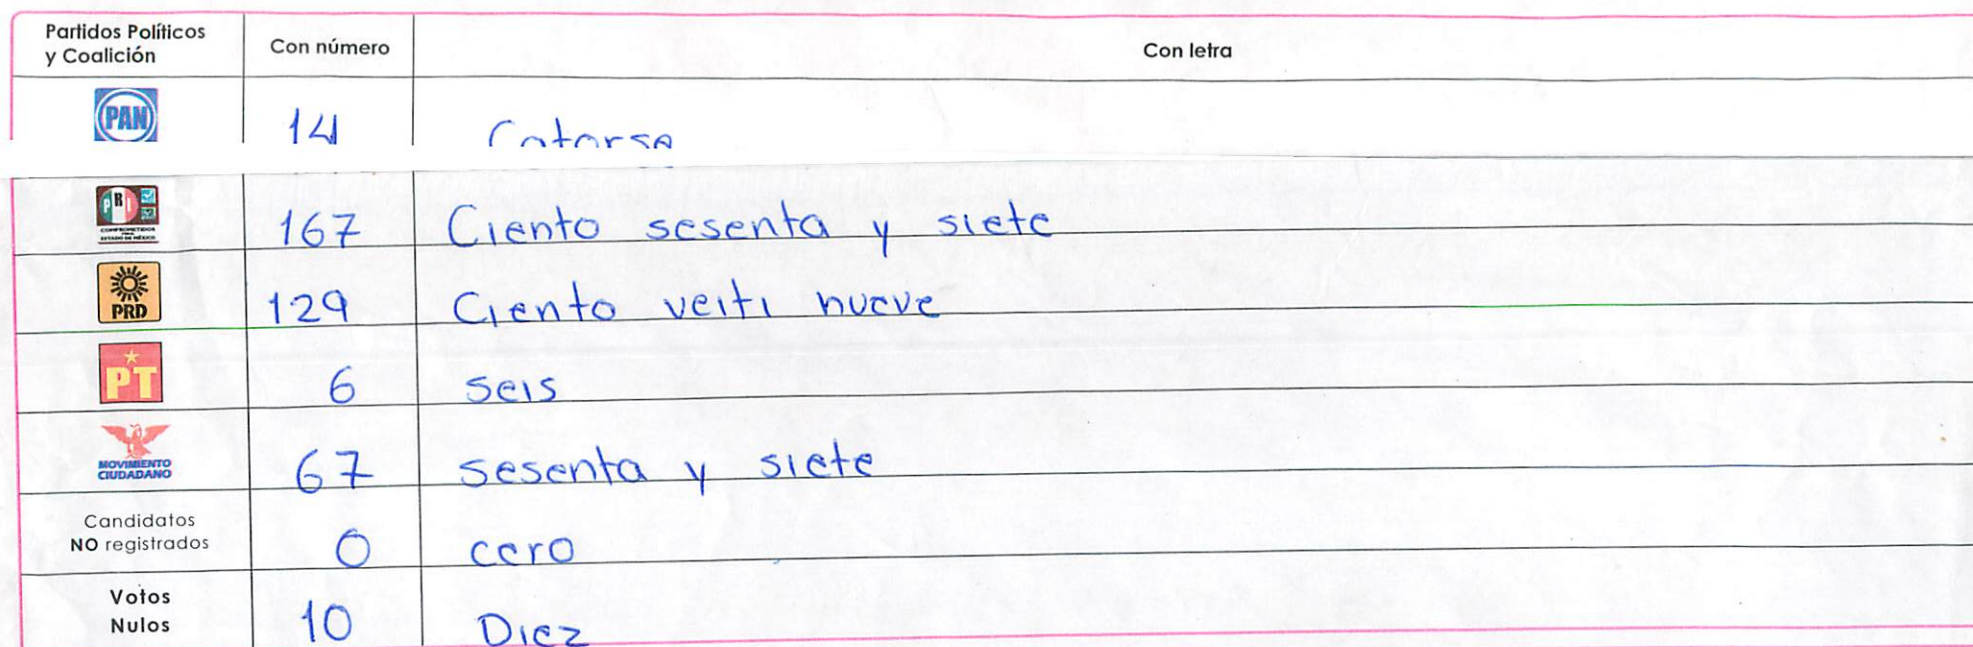 Partidos Políticos
y Coalición
Con número
Con letra
PAN
14
Catorse
PRI
COMPROMETIDOS
ESTADO DE MÉXICO
167
Ciento sesenta y siete
PRD
129
Ciento veiti nueve
PT
6
seis
MOVIMIENTO
CIUDADANO
67
sesenta y siete
Candidatos
NO registrados
0
cero
Votos
Nulos
10
Diez